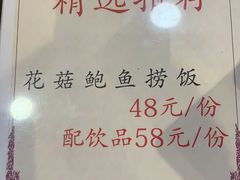 精选推荐
花菇鲍鱼捞饭
48元/份
配饮品58元/份